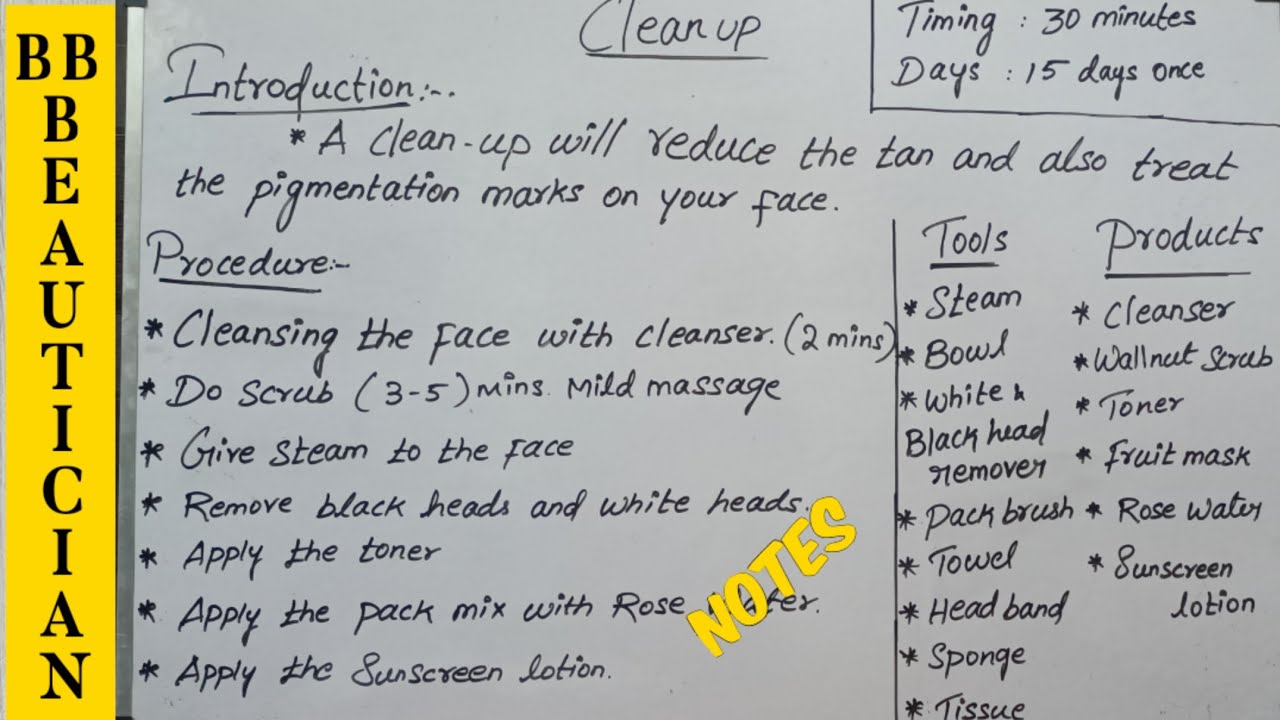 BB
BEAUTICIAN
Clean up
Timing : 30 minutes
Days : 15 days once
Introduction:-.
* A clean-up will reduce the tan and also treat
the pigmentation marks on your face.
Procedure:-
* Cleansing the face with cleanser. (2 mins)
* Do scrub (3-5) mins. Mild massage
* Give steam to the face
* Remove black heads and white heads.
* Apply the toner
* Apply the pack mix with Rose water.
* Apply the Sunscreen lotion.
NOTES
Tools
* Steam
* Bowl
* White &
Black head
remover
* Pack brush
* Towel
* Head band
* Sponge
* Tissue
Products
* Cleanser
* Wallnut Scrub
* Toner
* Fruit mask
* Rose water
* Sunscreen
lotion